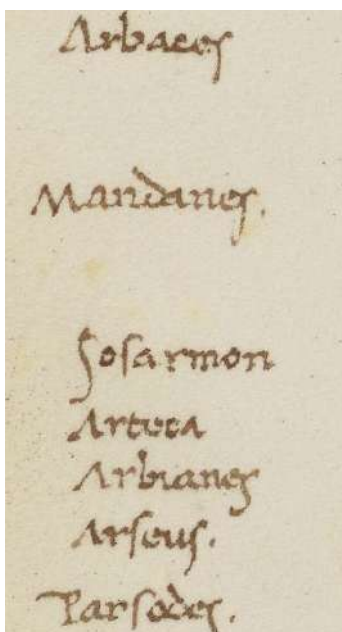 Arbaces
Mandanes.
Sosarmon
Arteca
Arbianes
Arseus.
Parsodes.